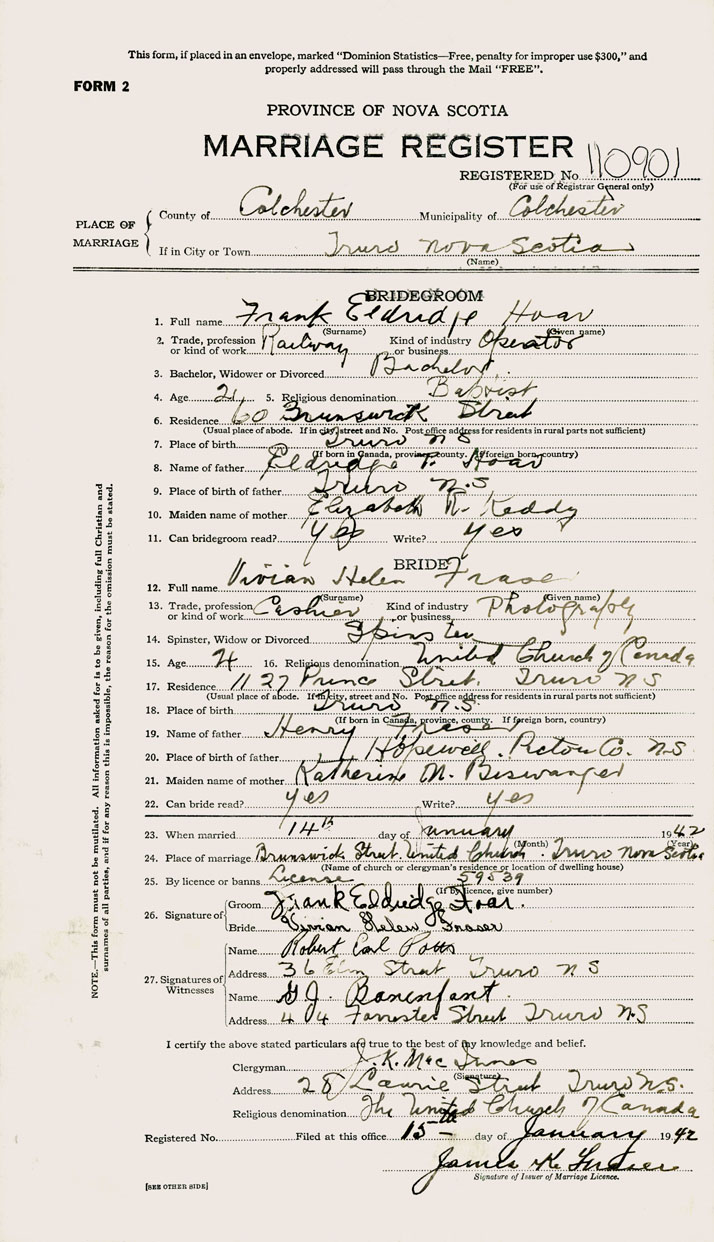 This form, if placed in an envelope, marked "Dominion Statistics—Free, penalty for improper use $300," and
properly addressed will pass through the Mail "FREE".
FORM 2
PROVINCE OF NOVA SCOTIA
MARRIAGE REGISTER
REGISTERED No. 110901
(For use of Registrar General only)
PLACE OF MARRIAGE
County of Colchester Municipality of Colchester
If in City or Town Truro Nova Scotia
(Name)
BRIDEGROOM
1. Full name Frank Eldridge Hoar
(Surname) (Given name)
2. Trade, profession or kind of work Railway Kind of industry or business Operator
3. Bachelor, Widower or Divorced Bachelor
4. Age 21 5. Religious denomination Baptist
6. Residence 60 Brunswick Street
(Usual place of abode. If in city, street and No. Post office address for residents in rural parts not sufficient)
7. Place of birth Truro N S
(If born in Canada, province, county. If foreign born, country)
8. Name of father Eldridge T. Hoar
9. Place of birth of father Truro N.S
10. Maiden name of mother Elizabeth R. Keddy
11. Can bridegroom read? Yes Write? Yes
BRIDE
12. Full name Vivian Helen Fraser
(Surname) (Given name)
13. Trade, profession or kind of work Cashier Kind of industry or business Photography
14. Spinster, Widow or Divorced Spinster
15. Age 21 16. Religious denomination United Church of Canada
17. Residence 1127 Prince Street. Truro N S
(Usual place of abode. If in city, street and No. Post office address for residents in rural parts not sufficient)
18. Place of birth Truro N.S.
(If born in Canada, province, county. If foreign born, country)
19. Name of father Henry Fraser
20. Place of birth of father Hopewell. Pictou Co. N.S
21. Maiden name of mother Katherine M. Biswanger
22. Can bride read? Yes Write? Yes
23. When married 14th day of January 1942
(Month) (Year)
24. Place of marriage Brunswick Street United Church. Truro Nova Scotia
(Name of church or clergyman's residence or location of dwelling house)
25. By licence or banns License 59839
(If by licence, give number)
26. Signature of
Groom Frank Eldredge Hoar.
Bride Vivian Helen Fraser
27. Signatures of Witnesses
Name Robert Earl Potts
Address 36 Elm Street Truro N S
Name G.J. Bonenfant.
Address 404 Forrester Street Truro N.S
I certify the above stated particulars are true to the best of my knowledge and belief.
Clergyman J. K. MacInnes
(Signature)
Address 28 Laurie Street Truro N.S.
Religious denomination The United Church of Canada
Registered No. Filed at this office 15th day of January 1942
James K. Fraser
Signature of Issuer of Marriage Licence.
[SEE OTHER SIDE]
NOTE.—This form must not be mutilated. All information asked for is to be given, including full Christian and
surnames of all parties, and if for any reason this is impossible, the reason for the omission must be stated.